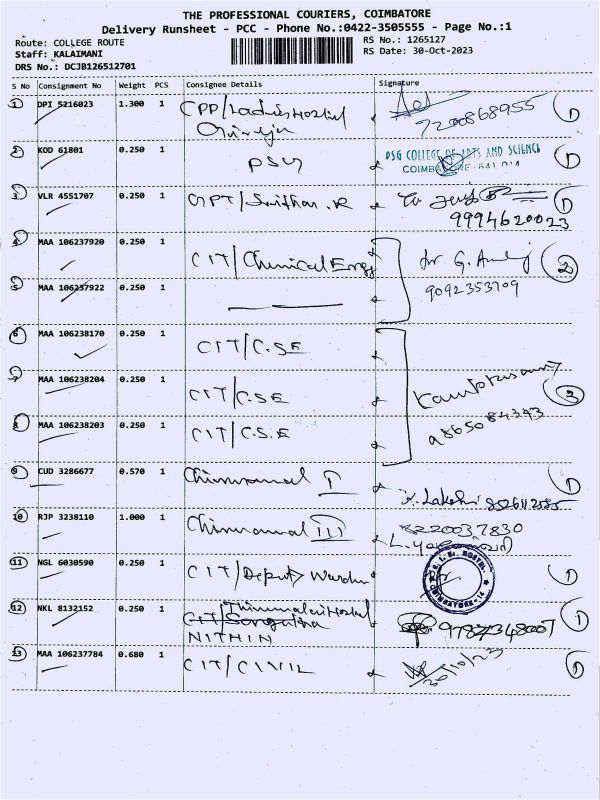 THE PROFESSIONAL COURIERS, COIMBATORE
Delivery Runsheet - PCC - Phone No.:0422-3505555 - Page No.:1
Route: COLLEGE ROUTE
Staff: KALAIMANI
DRS No.: DCJB126512701
RS No.: 1265127
RS Date: 30-Oct-2023
S No Consignment No Weight PCS Consignee Details Signature
1 DPI 5216023 1.300 1 CPP/Ladies Hostel
7200868955 1
2 KOD 61801 0.250 1 PSG PSG COLLEGE OF ARTS AND SCIENCE 1
COIMBATORE - 641 014
3 VLR 4551707 0.250 1 GPT/ .R 1
9994620023
4 MAA 106237920 0.250 1 CIT/Chemical Engg 2
5 MAA 106237922 0.250 1 9092353709
6 MAA 106238170 0.250 1 CIT/C.SE
7 MAA 106238204 0.250 1 CIT/C.SE 3
8 MAA 106238203 0.250 1 CIT/C.S.E 8650 84343
9 CUD 3286677 0.570 1 Chinnamal I 1
Lakshi 8526112585
10 RJP 3238110 1.000 1 Chinnamal III 8220037830
11 NGL 6030590 0.250 1 CIT/Deputy Warden COIMBATORE-14 1
12 NKL 8132152 0.250 1 Hostel 1
CIT/
NITHIN
13 MAA 106237784 0.680 1 CIT/CIVIL 30/10/23 1